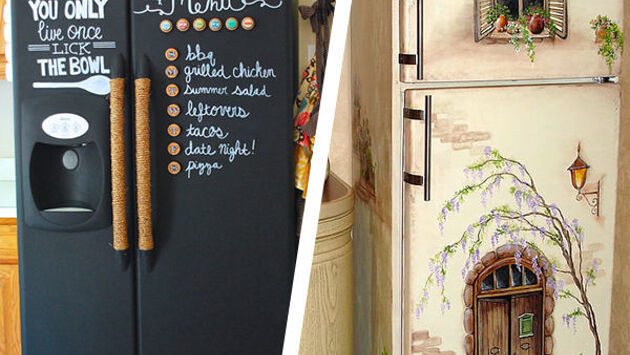 YOU ONLY
live once
LICK
THE BOWL
Menu
bbq
grilled chicken
summer salad
leftovers
tacos
date night!
pizza